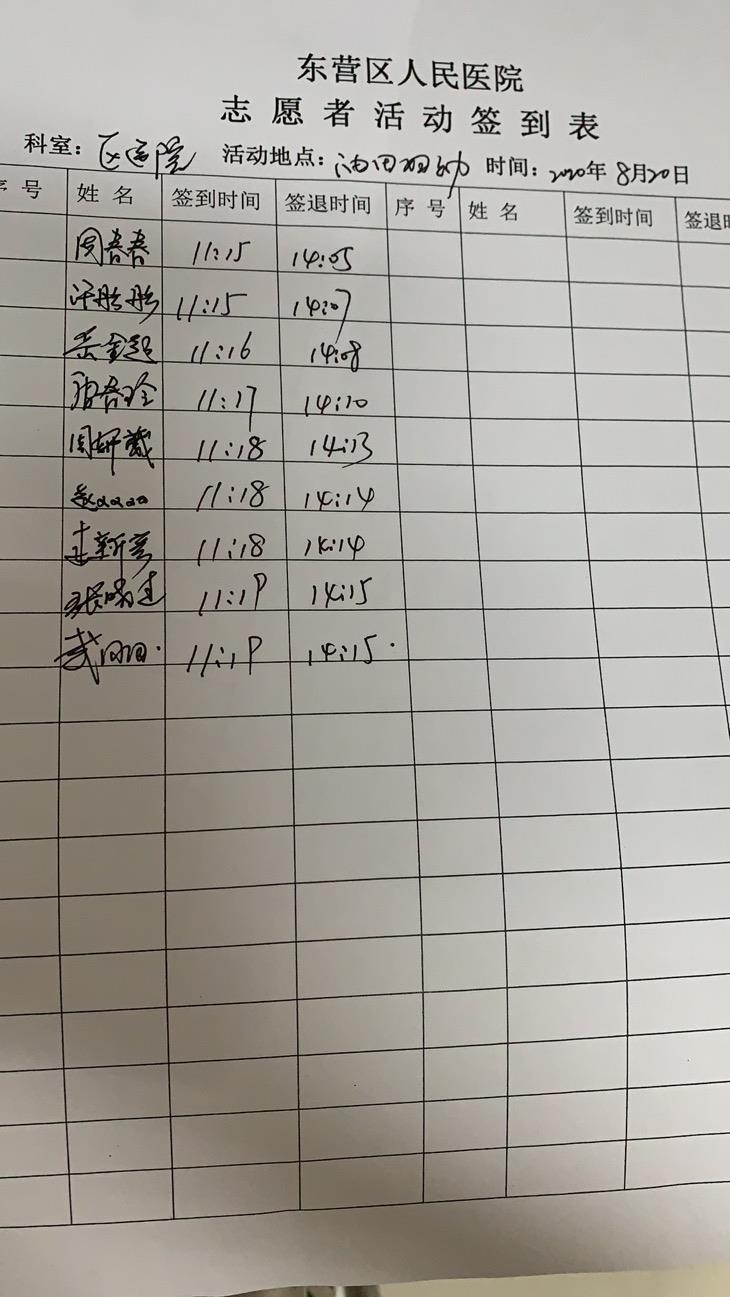 东营区人民医院
志愿者活动签到表
科室：区医院 活动地点：油田妇幼 时间：2020年8月20日
序号 姓名 签到时间 签退时间 序号 姓名 签到时间 签退时
周春春 11:15 14:05
许彤彤 11:15 14:07
岳金超 11:16 14:08
11:17 14:10
周妍 11:18 14:13
赵 11:18 14:14
新 11:18 14:14
张 11:19 14:15
武 11:19 14:15